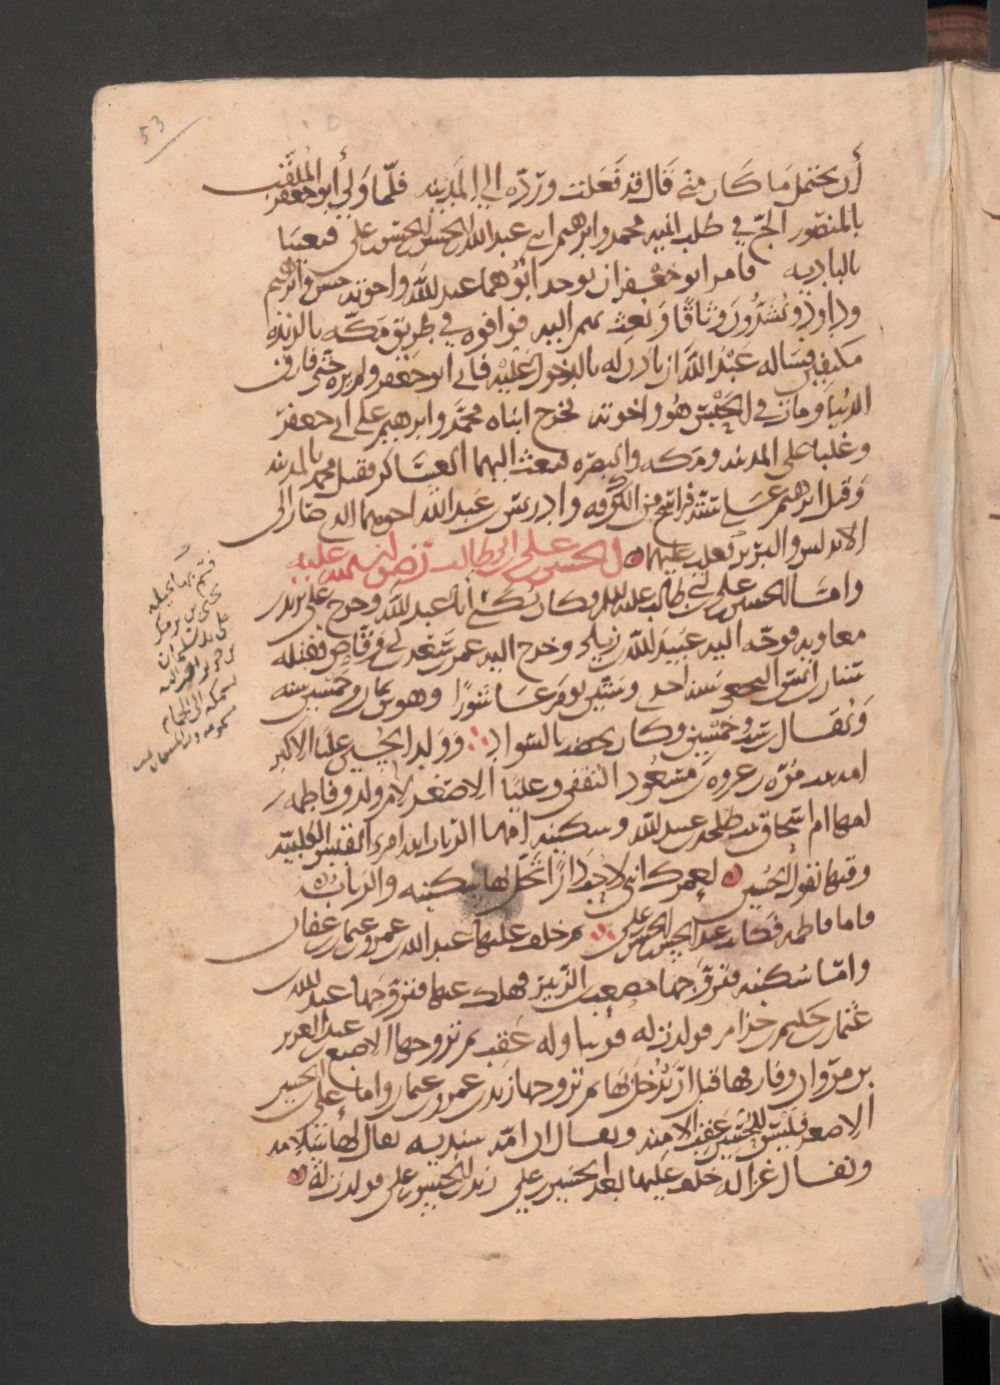 53
أن يحتمل ما كان مني قال قد فعلت وردّه الى المدينة فلمّا ولي أبو جعفر الملقّب
بالمنصور الحّ في طلب ابنيه محمد وابرهيم ابني عبد الله بن الحسن بن الحسن بن علي فتغيبا
بالبادية فامر ابو جعفر ان يوخذ ابوهما عبد الله واخوته حسن وابرهيم
وداود ويشدّون وثاقا ويبعث بهم اليه فوافوه في طريق مكّه بالربذة
مكتفين فساله عبد الله ان ياذن له بالدخول عليه فابى ابو جعفر ولم يره حتى فارق
الدنيا ومات في الحبس هو واخوته فخرج ابناه محمّد وابرهيم على ابي جعفر
وغلبا على المدينه ومكه والبصره فبعث اليهما العساكر فقتل محمد بالمدينه
وقتل ابرهيم على ستة عشر فرسخ من الكوفه وادريس بن عبد الله اخوهما الذي صار الى
الاندلس والبربر فغلب عليهما الحسين بن علي بن ابي طالب رضوان الله عليه
وامّا الحسين بن علي بن ابي طالب فكان يكنى أبا عبد الله وخرج على يزيد بن
معاويه فوجّه اليه عبيد الله بن زياد وخرج اليه عمر بن سعد بن ابي وقّاص فقتله
سنان بن انس النخعي سنة احدى وستين يوم عاشورا وهو بن ثمان وخمسين سنه
ويقال ستّ وخمسين وكان يخضب بالسواد وولد الحسين عليّا الاكبر
امه بنت مُرّه بن عروه بن مسعود الثقفي وعليّا الاصغر لام ولد وفاطمه
امها ام اسحاق بنت طلحه بن عبيد الله وسكينه امها الرباب ابنه امرء القيس الكلبيّه
وفيها يقول الحسين لعمرك انني لاحب دارًا تحلّ بها سكينه والرباب
فاما فاطمه فكانت عند الحسن بن الحسن بن علي ثم خلف عليها عبد الله بن عمرو بن عثمان بن عفان
وامّا سُكينه فتزوّجها مصعب بن الزّبير فهلك عنها فتزوّجها عبد الله بن
عثمان بن حكيم بن حزام فولدت له قرينا وله عقب ثم تزوجها الاصبغ بن عبد العزيز
بن مروان وفارقها قبل ان يدخل بها ثم تزوجها زيد بن عمرو بن عثمان واما علي بن الحسين
الاصغر فليس للحسين عقب الا منه ويقال ان امّه سنديه يقال لها سلامه
ويقال غزاله خلف عليها بعد الحسين بن علي زبيد مولى الحسين بن علي فولدت له